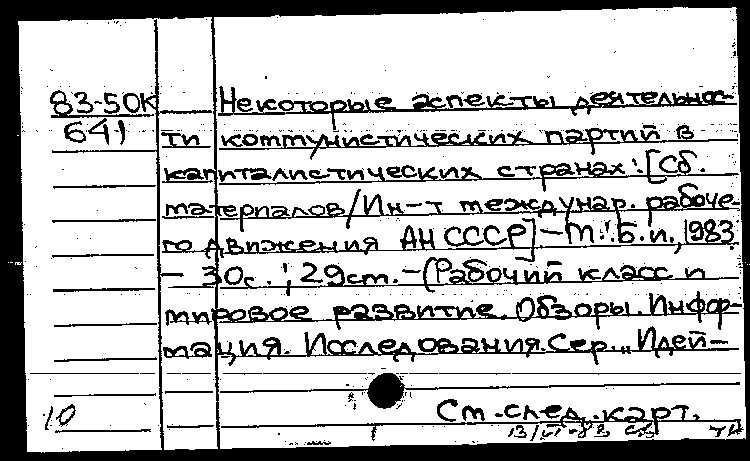 83-50К Некоторые аспекты деятельнос-
641 ти коммунистических партий в
капиталистических странах: [Сб.
материалов/Ин-т междунар. рабоче-
го движения АН СССР] – М.: Б.и., 1983.
– 30с.; 29см. – (Рабочий класс и
мировое развитие. Обзоры. Инфор-
мация. Исследования. Сер. „Идей-
10 См. след. карт.